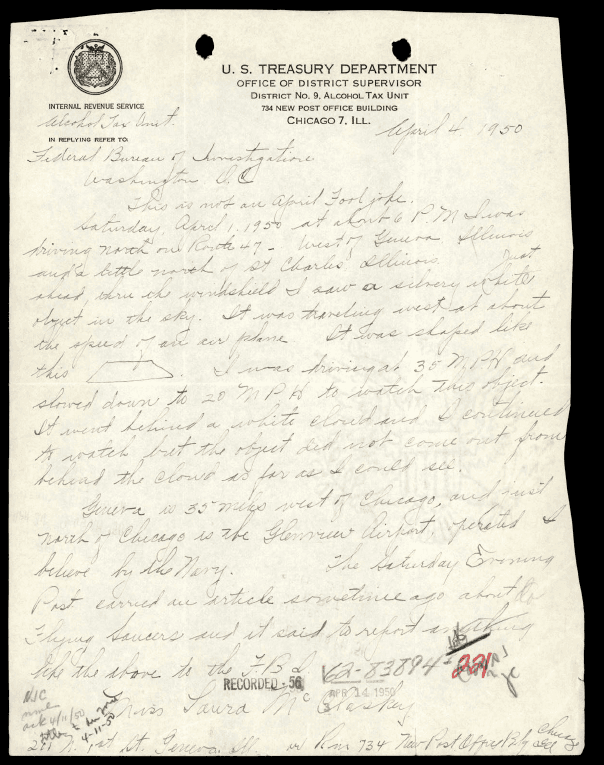 U. S. TREASURY DEPARTMENT
OFFICE OF DISTRICT SUPERVISOR
DISTRICT No. 9, ALCOHOL TAX UNIT
734 NEW POST OFFICE BUILDING
CHICAGO 7, ILL.
INTERNAL REVENUE SERVICE
Alcohol Tax Unit.
IN REPLYING REFER TO:
April 4, 1950
Federal Bureau of Investigation
Washington D.C
This is not an April Fool joke.
Saturday, April 1, 1950 at about 6 P.M I was
driving north on Route 47 - west of Geneva Illinois
and a little north of St Charles Illinois. Just
ahead, thru the windshield I saw a silvery white
object in the sky. It was traveling west at about
the speed of an air plane. It was shaped like
this . I was driving at 35 M.P.H and
slowed down to 20 M P H to watch this object.
It went behind a white cloud and I continued
to watch but the object did not come out from
behind the cloud as far as I could see.
Geneva is 35 miles west of Chicago, and just
north of Chicago is the Glenview Airport, operated I
believe by the Navy. The Saturday Evening
Post carried an article sometime ago about the
Flying Saucers and it said to report anything
like the above to the F B I
RECORDED - 56
62-83894-221
APR 14 1950
Miss Laura McClaskey
N. 1st St. Geneva, Ill. or Rm 734 New Post Office Bldg Chicago
4/11/50
4-11-50